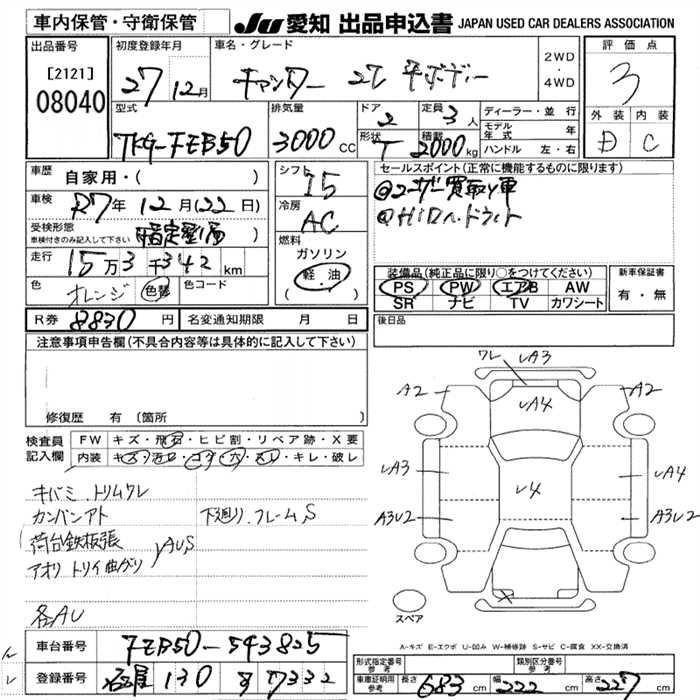 車内保管・守衛保管
JU 愛知 出品申込書 JAPAN USED CAR DEALERS ASSOCIATION
出品番号
[2121]
08040
初度登録年月
27 12月
車名・グレード
キャンター 2t 平ボディー
2WD
・
4WD
評価点
3
外装 内装
D C
型式
TKG-FEB50
排気量
3000 cc
ドア
2
形状
T
定員
3 人
積載
2000 kg
ディーラー・並行
モデル年式 年
ハンドル 左・右
車歴
自家用・( )
車検
R7年 12月(22日)
受検形態
車検付きのみ記入して下さい
(指定整備)
走行
15万3千342km
色
オレンジ 色替
色コード
シフト
I5
冷房
AC
燃料
ガソリン
軽・油
( )
セールスポイント(正常に機能するものに限ります)
@ユーザー買取り車
@HIDヘッドライト
装備品(純正品に限り○をつけてください)
PS PW エアB AW
SR ナビ TV カワシート
新車保証書
有・無
R券 8830円
名変通知期限 月 日
後日品
注意事項申告欄(不具合内容等は具体的に記入して下さい)
修復歴 有 〔箇所
検査員
記入欄
FW キズ・飛石・ヒビ割・リペア跡・X要
内装 キズ・汚れ・コゲ・穴・スレ・キレ・破レ
キバミ.トリムワレ
カンバンアト
下廻り.フレームS
荷台鉄板張
アオリ トリイ曲がり
AUS
各AU
ワレ
LA3
A2
LA4
A2
LA3
L4
LA4
A3U2
A3U2
X
スペア
A-キズ E-エクボ U-凹み W-補修跡 S-サビ C-腐食 XX-交換済
車台番号
FEB50-543825
登録番号
名古屋 130 す 7332
形式指定番号
参考
類別区分番号
参考
車庫証明用
参考
長さ 683 cm
幅 222 cm
高さ 227 cm